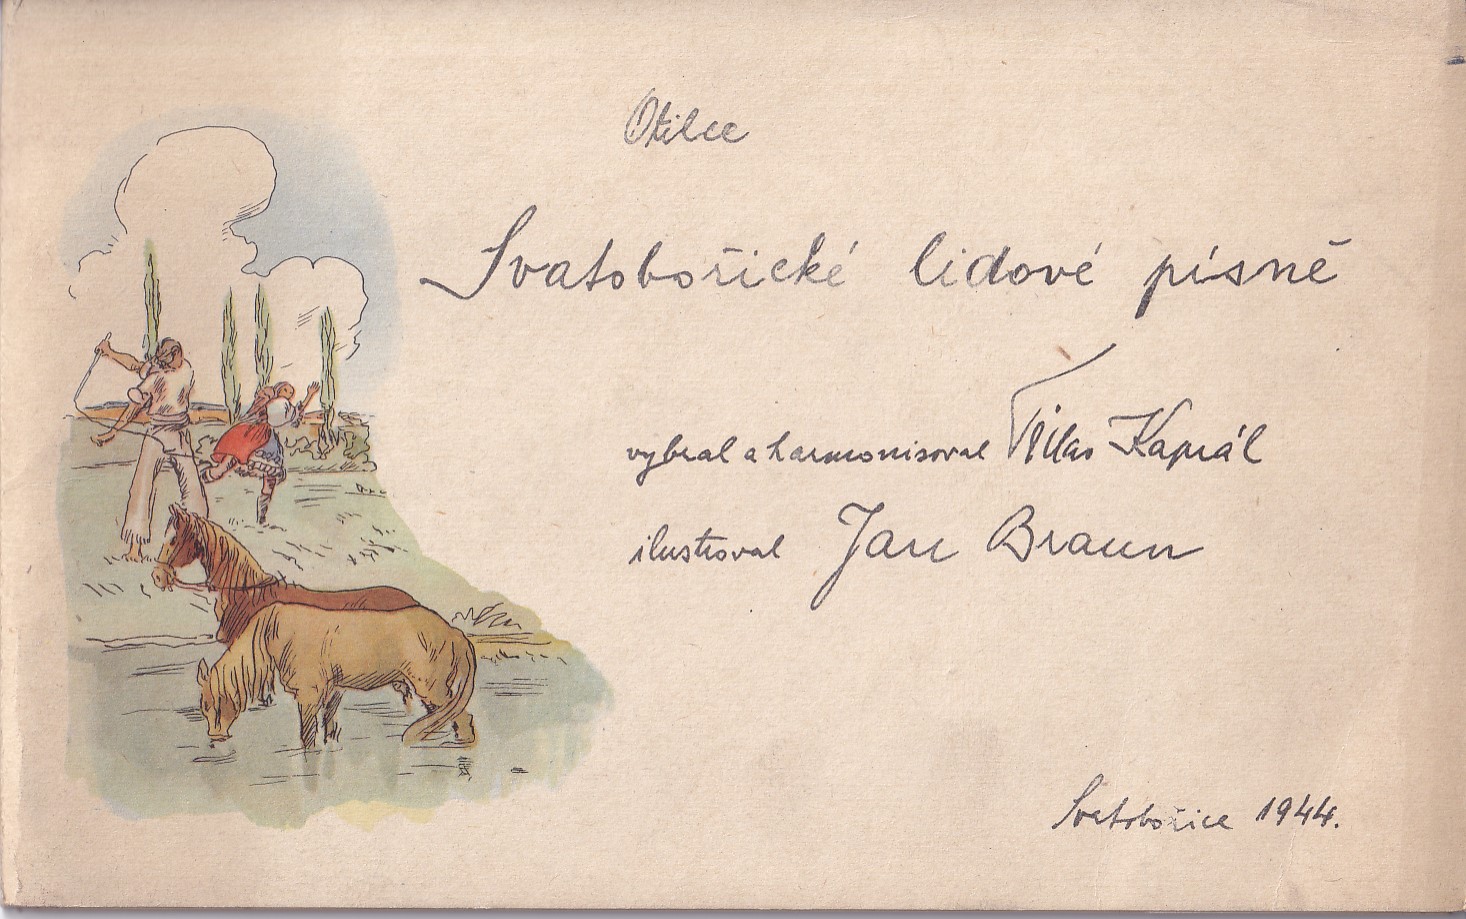 Otilce
Svatobořické lidové písně
vybral a harmonisoval Kaprál
ilustroval Jan Braun
Svatobořice 1944.